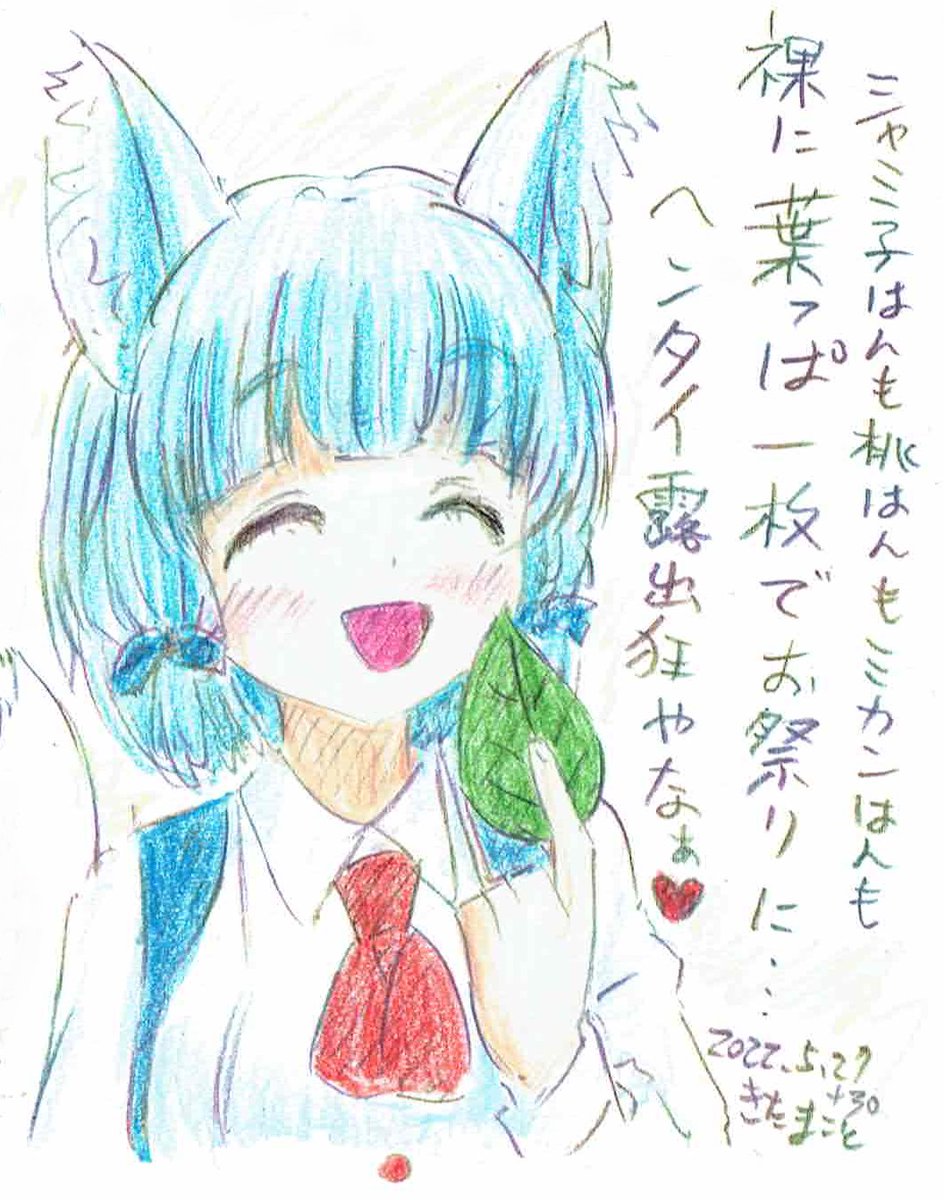 シャミ子はんも桃はんもミカンはんも
裸に葉っぱ一枚でお祭りに…
ヘンタイ露出狂やなぁ♥
2022.5.27
+30
きたまこと